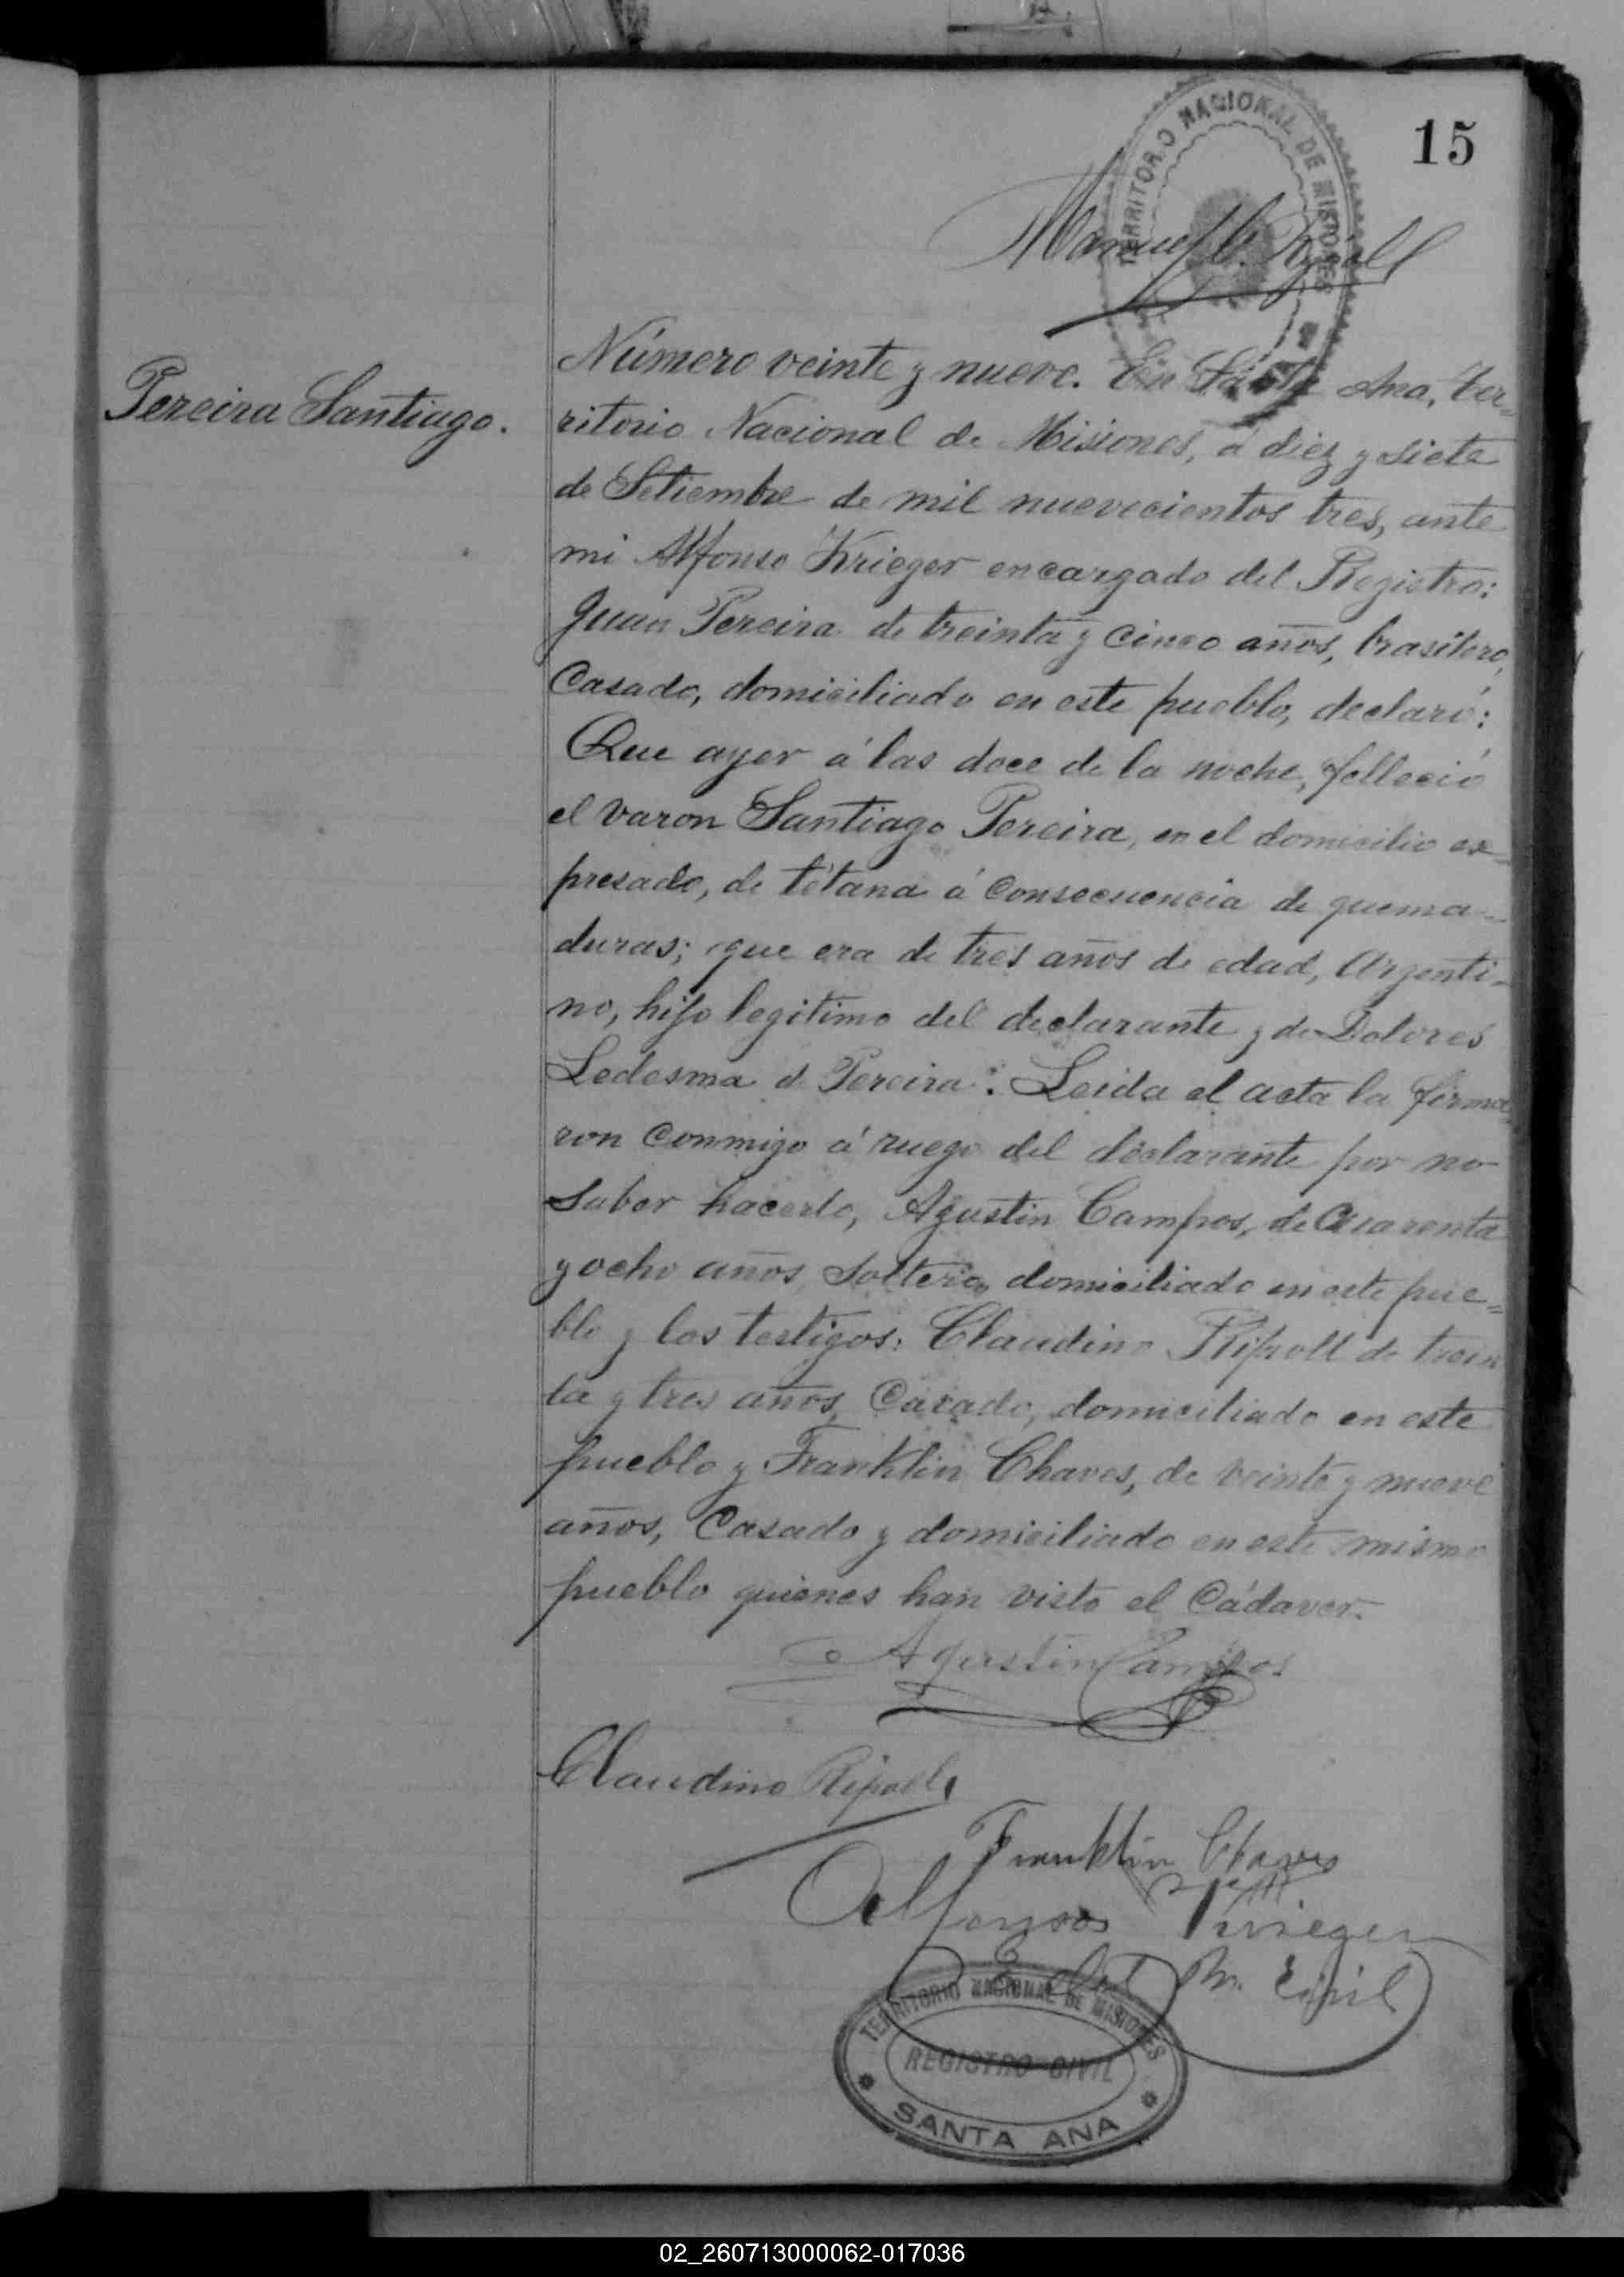 15
TERRITORIO NACIONAL DE MISIONES
Pereira Santiago.
Número veinte y nueve. En Santa Ana, Ter-
ritorio Nacional de Misiones, á diez y siete
de Setiembre de mil nuevecientos tres, ante
mi Alfonso Krieger encargado del Registro:
Juan Pereira de treinta y cinco años, brasilero,
Casado, domiciliado en este pueblo, declaró:
Que ayer á las doce de la noche, felleció
el varon Santiago Pereira, en el domicilio ex-
presado, de tétana á Consecuencia de quema-
duras; que era de tres años de edad, Argenti-
no, hijo legitimo del declarante y de Dolores
Ledesma de Pereira: Leida el acta la firma
ron Conmigo á ruego del declarante por no
Saber hacerlo, Agustin Campos, de Cuarenta
y ocho años, Soltero, domiciliado en este pue=
blo y los testigos: Claudino Ripoll de trein
ta y tres años, Casado, domiciliado en este
pueblo y Franklin Chaves, de veinte y nueve
años, Casado y domiciliado en este mismo
pueblo quienes han visto el Cádaver.
Agustin Campos
Claudino Ripoll
Franklin Chaves
Alfonso Krieger
TERRITORIO NACIONAL DE MISIONES
REGISTRO CIVIL
SANTA ANA
02_260713000062-017036